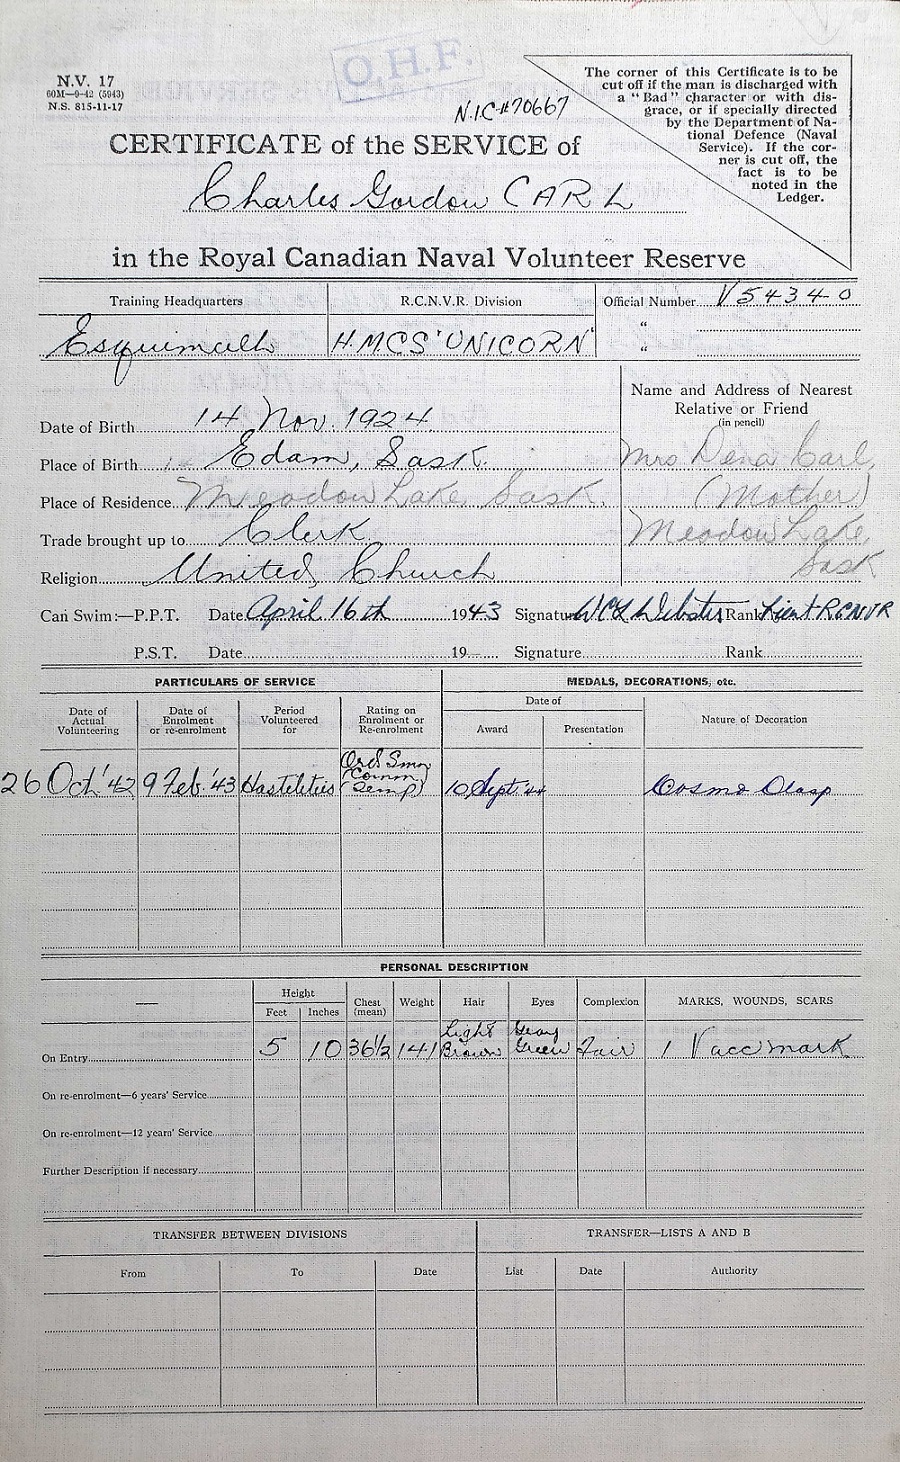 O.H.F.
N.V. 17
60M—9-42 (5943)
N.S. 815-11-17
N.I.C #70667
The corner of this Certificate is to be
cut off if the man is discharged with
a "Bad" character or with dis-
grace, or if specially directed
by the Department of Na-
tional Defence (Naval
Service). If the cor-
ner is cut off, the
fact is to be
noted in the
Ledger.
CERTIFICATE of the SERVICE of
Charles Gordon CARL
in the Royal Canadian Naval Volunteer Reserve
Training Headquarters R.C.N.V.R. Division Official Number V54340
Esquimalt H.M.C.S "UNICORN" "
"
Name and Address of Nearest
Relative or Friend
(in pencil)
Date of Birth 14 Nov. 1924
Place of Birth Edam, Sask. Mrs Dena Carl,
Place of Residence Meadow Lake, Sask. (Mother)
Trade brought up to Clerk Meadow Lake,
Religion United Church Sask
Can Swim:—P.P.T. Date April 16th 1943 Signature Webster Rank Lieut RCNVR
P.S.T. Date 19 Signature Rank
PARTICULARS OF SERVICE MEDALS, DECORATIONS, etc.
Date of
Actual
Volunteering
Date of
Enrolment
or re-enrolment
Period
Volunteered
for
Rating on
Enrolment or
Re-enrolment
Date of
Award Presentation
Nature of Decoration
26 Oct '42 9 Feb. '43 Hostilities Ord Smn
(Comm)
(Temp) 10 Sept '44 Clasp
PERSONAL DESCRIPTION
— Height Chest
(mean) Weight Hair Eyes Complexion MARKS, WOUNDS, SCARS
Feet Inches
On Entry 5 10 36½ 141 Light
Brown Green Fair 1 Vacc mark
On re-enrolment—6 years' Service
On re-enrolment—12 years' Service
Further Description if necessary
TRANSFER BETWEEN DIVISIONS TRANSFER—LISTS A AND B
From To Date List Date Authority